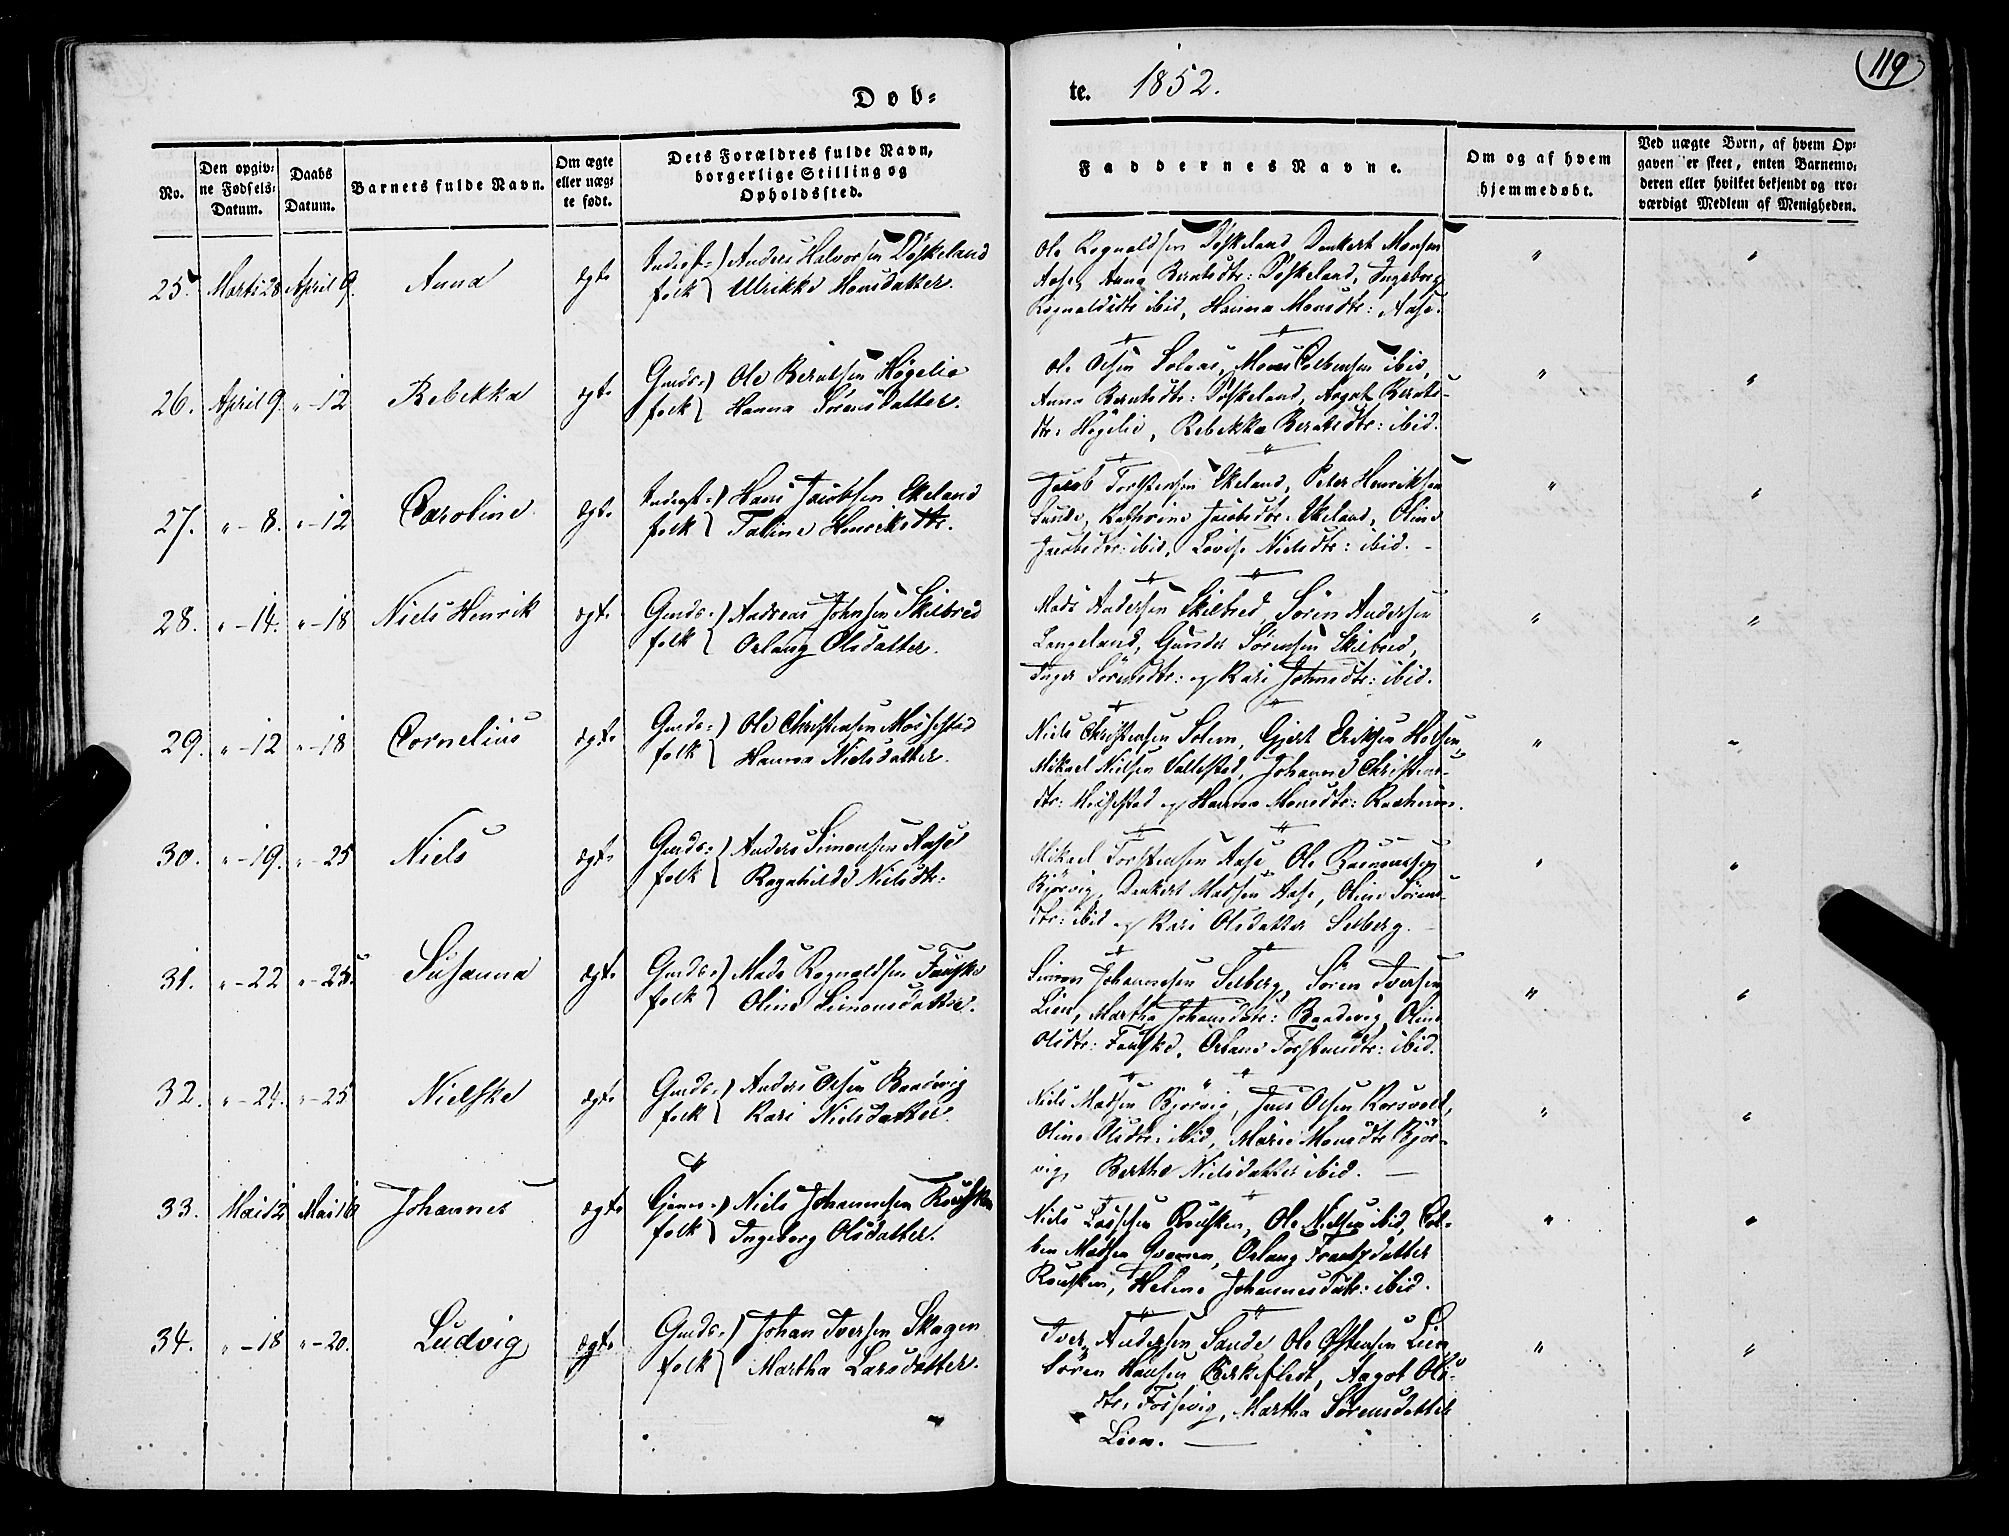 119
Døb=
te. 1852.
No.
Den opgiv=
ne Fødsels=
Datum.
Daabs
Datum.
Barnets fulde Navn.
Om ægte
eller uæg=
te født.
Dets Forældres fulde Navn,
borgerlige Stilling og
Opholdssted.
Faddernes Navne.
Om og af hvem
hjemmedøbt.
Ved uægte Børn, af hvem Op=
gaven er skeet, enten Barnemo=
deren eller hvilket bekjendt og tro=
værdigt Medlem af Menigheden.
25. Marts 28 April 9. Anna ægt.
Anders Halvorsen Døskeland
folk Ulrikke Monsdatter.
Ole Rognaldsen Døskeland, Denkert Monsen
Aase, Anna Berntsdtr: Døskeland, Ingeborg
Rognaldsdtr ibid, Hanna Monsdtr: Aase.
" "
26. April 9. "-12 Rebekka ægt.
Gaards=) Ole Berntsen Høgelie
folk Hanna Sörensdatter.
Ole Olsen Solaas, Mons Colbensen ibid,
Anna Berntsdtr: Døskeland, Aagot Bernts-
dtr: Høgelie, Rebekka Berntsdtr: ibid.
" "
27. "- 8. "-12 Caroline ægt.
Hans Jacobsen Ekeland
folk Taline Henriksdtr.
Jacob Torstensen Ekeland, Peter Henriksen
Sande, Kathrine Jacobsdtr: Ekeland, Oline
Jacobsdtr: ibid, Lovise Nielsdtr: ibid. -
" "
28. "-14. "-18 Niels Henrik ægt.
Gaards=) Andreas Johnsen Skilbred
folk Orlaug Olsdatter.
Mads Andersen Skilbred, Sören Andersen
Langeland, Gunder Sørensen Skilbred,
Inger Sörensdtr: og Kari Johnsdtr: ibid.
" "
29. "-12 "-18 Cornelius ægt.
Gaards=) Ole Christensen Mossestad
folk Hanna Nielsdatter.
Niels Christensen Solem, Gjert Eriksen Holsen,
Mikael Nielsen Vallestad, Johanne Christens-
dtr: Mossestad og Hanna Monsdtr:
" "
30. "-19. "-25 Niels ægt.
Gaards=) Anders Simonsen Aase
folk Ragnhilde Nielsdtr:
Mikael Torstensen Aase, Ole Rasmussen
Bjørvig, Denkert Madsen Aase, Oline Sörens-
dtr: ibid og Kari Olsdatter Selberg. -
" "
31. "-22 "-25. Susanna ægt.
Gaards=) Mads Rognaldsen Fauske
folk Oline Simonsdatter.
Simon Johannesen Selberg, Sören Iversen
Lien, Martha Johansdtr: Baadvig, Oline
Olsdtr: Fauske, Orlaue Torstensdtr: ibid.
" "
32. "-24. "-25 Nielske ægt.
Gaards=) Anders Olsen Baadvig
folk Kari Nielsdatter.
Niels Madsen Bjørvig, Jens Olsen Korsvold,
Oline Olsdtr: ibid, Marie Monsdtr Bjør-
vig, Berthe Nielsdatter ibid. —
" "
33. Mai 12 Mai 16 Johannes ægt.
folk) Niels Johannesen
Ingeborg Olsdatter.
Niels Lassesen, Ole Nielsen ibid, Col-
ben Madsen Qvamen, Orlaug Frantzdatter
Helene Johannesdatr: ibid.
" "
34. "-18 "-20. Ludvig ægt.
Gaards=) Johan Iversen Skagen
folk Martha Larsdatter.
Iver Andersen Sande, Ole Østensen Lien
Sören Hansen Birkeflot, Aagot Ols-
dtr: Fossevig, Martha Sörensdatter
Lien. —
" "